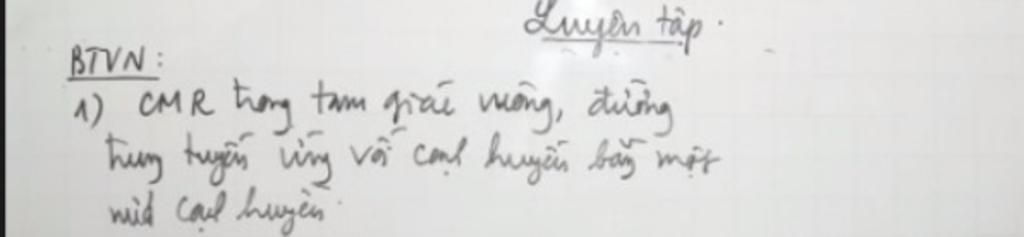 Luyện tập.
BTVN:
1) CMR trong tam giác vuông, đường
trung tuyến ứng với cạnh huyền bằng một
nửa cạnh huyền.